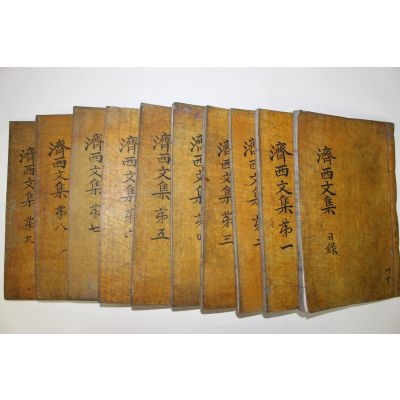 濟西文集 目錄
共十
濟西文集 第一
濟西文集 第二
濟西文集 第三
濟西文集 第四
濟西文集 第五
濟西文集 第六
濟西文集 第七
濟西文集 第八
濟西文集 第九